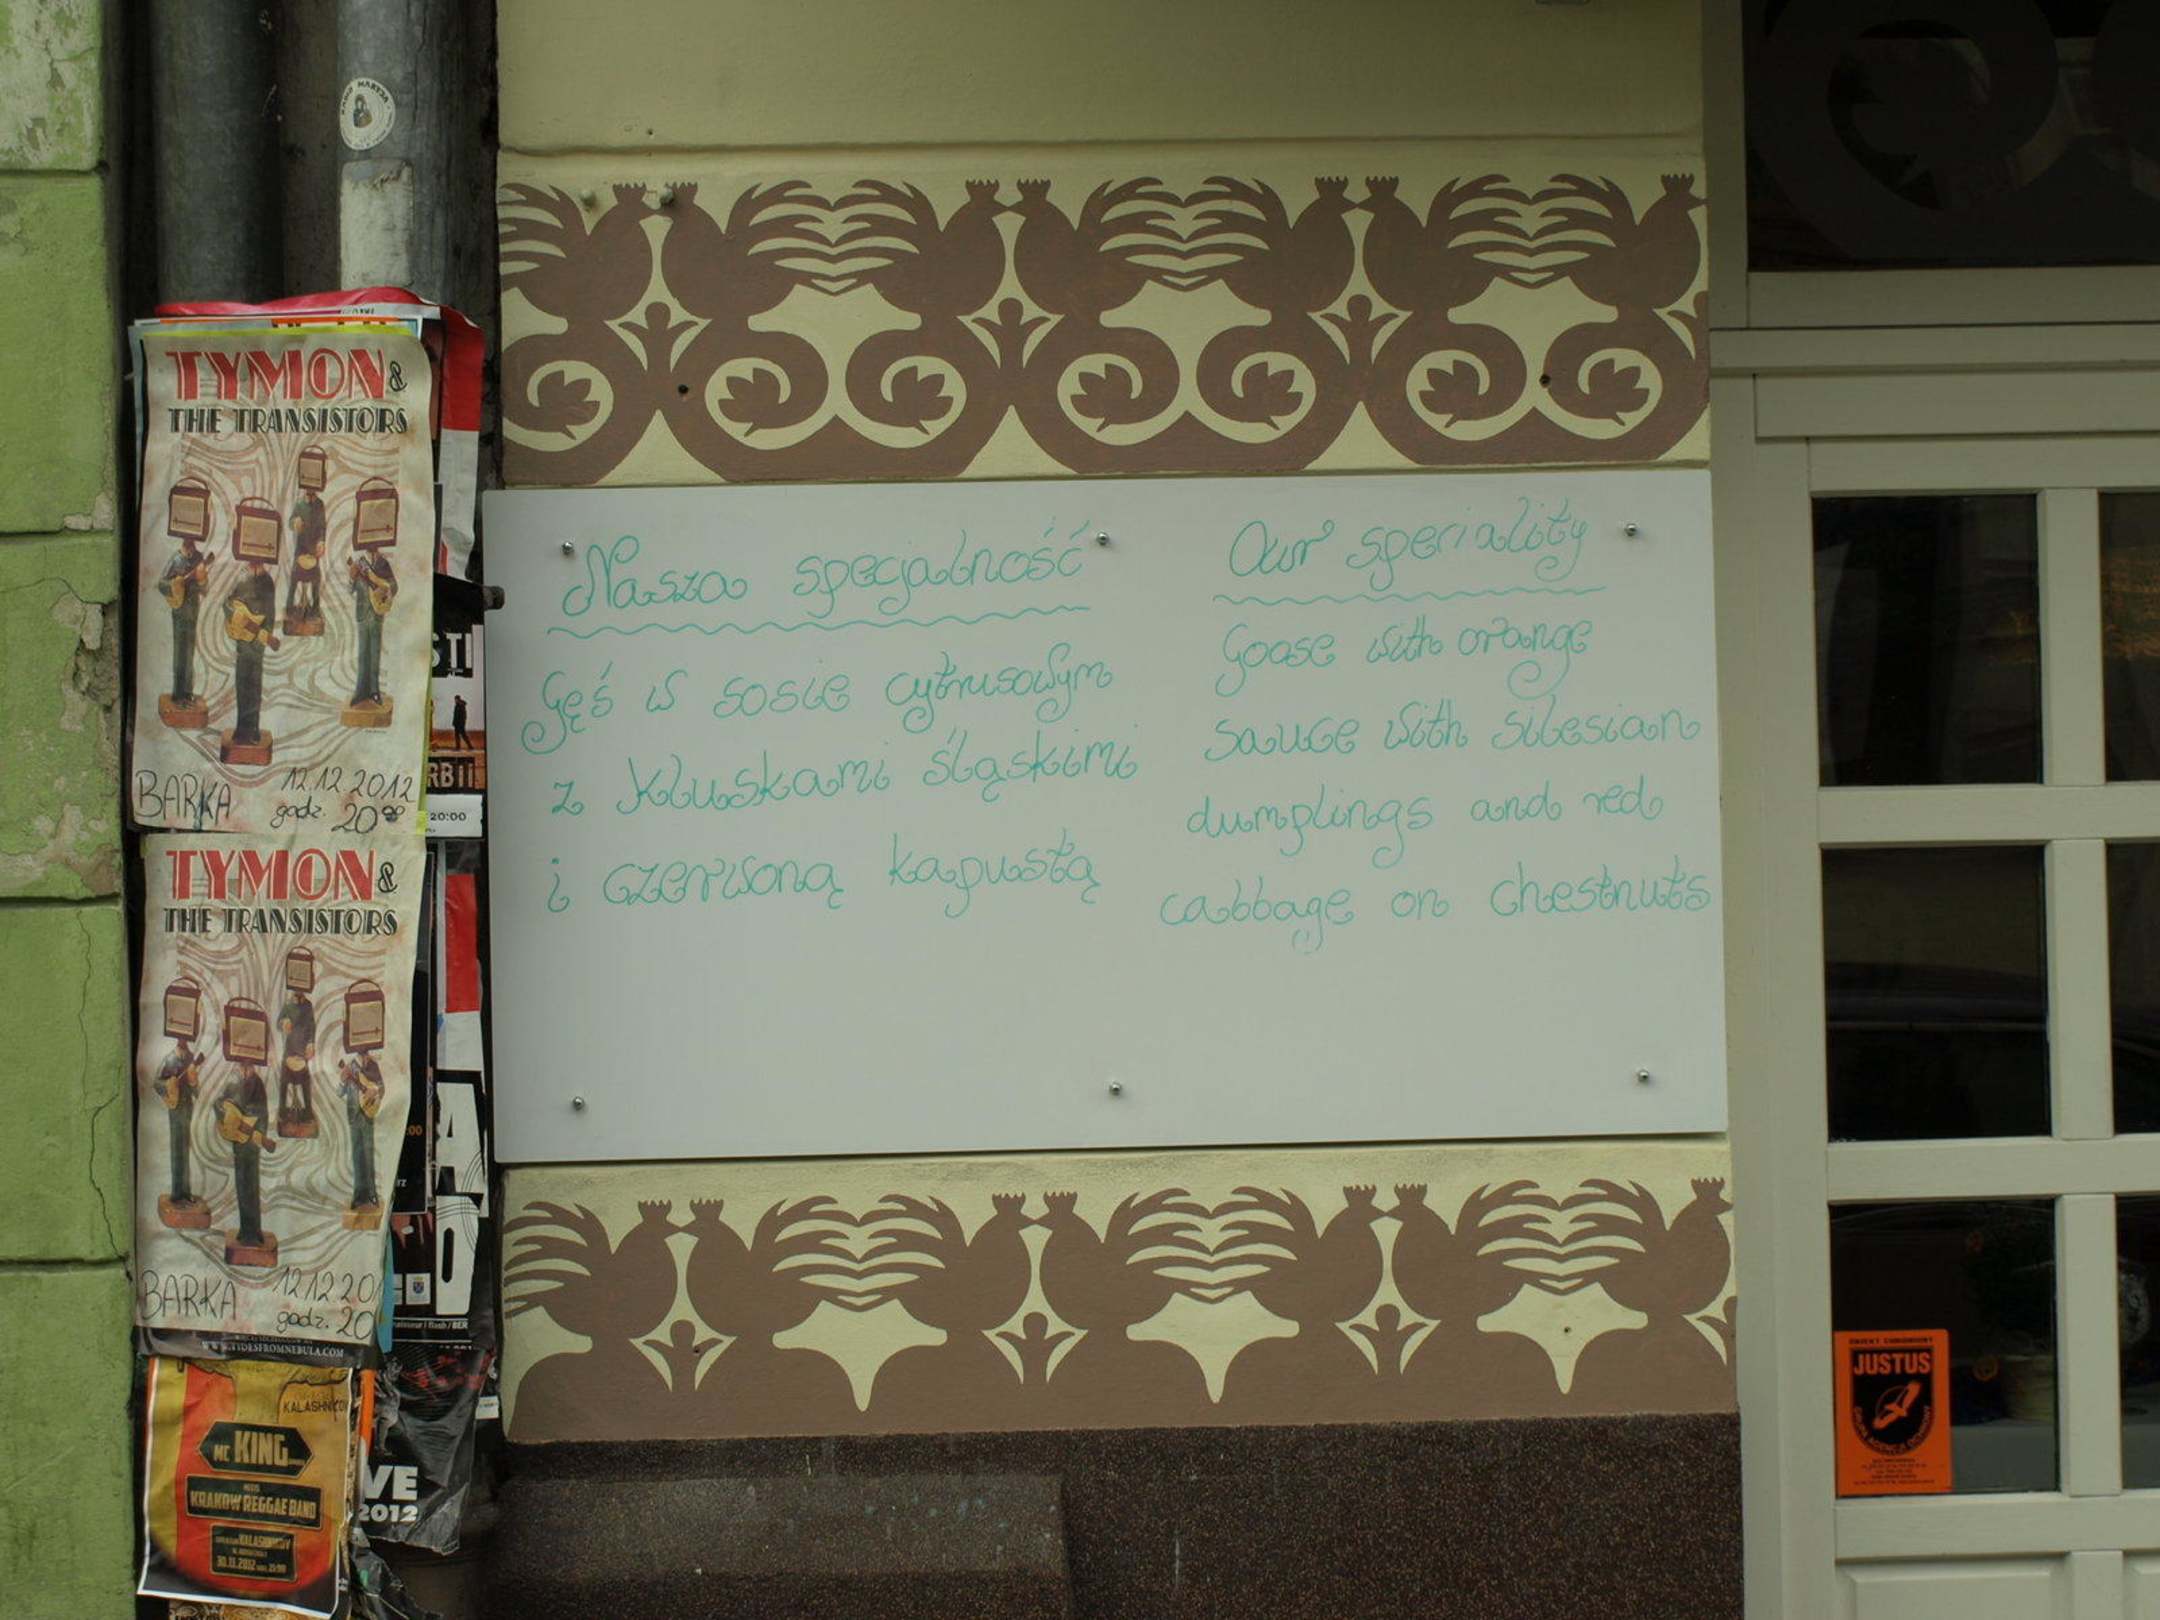 TYMON &
THE TRANSISTORS
BARKA 12.12.2012
godz. 20⁰⁰
TYMON &
THE TRANSISTORS
BARKA 12.12.20
godz. 20
WWW.TIDESFROMNEBULA.COM
KALASHNIKOV
MC KING
KRAKOW REGGAE BAND
KALASHNIKOV
30.11.2012
STI
RBII
20:00
VE
2012
Nasza specjalność
Gęś w sosie cytrusowym
z kluskami śląskimi
i czerwoną kapustą
Our speriality
Goose with orange
sauce with silesian
dumplings and red
cabbage on chestnuts
JUSTUS